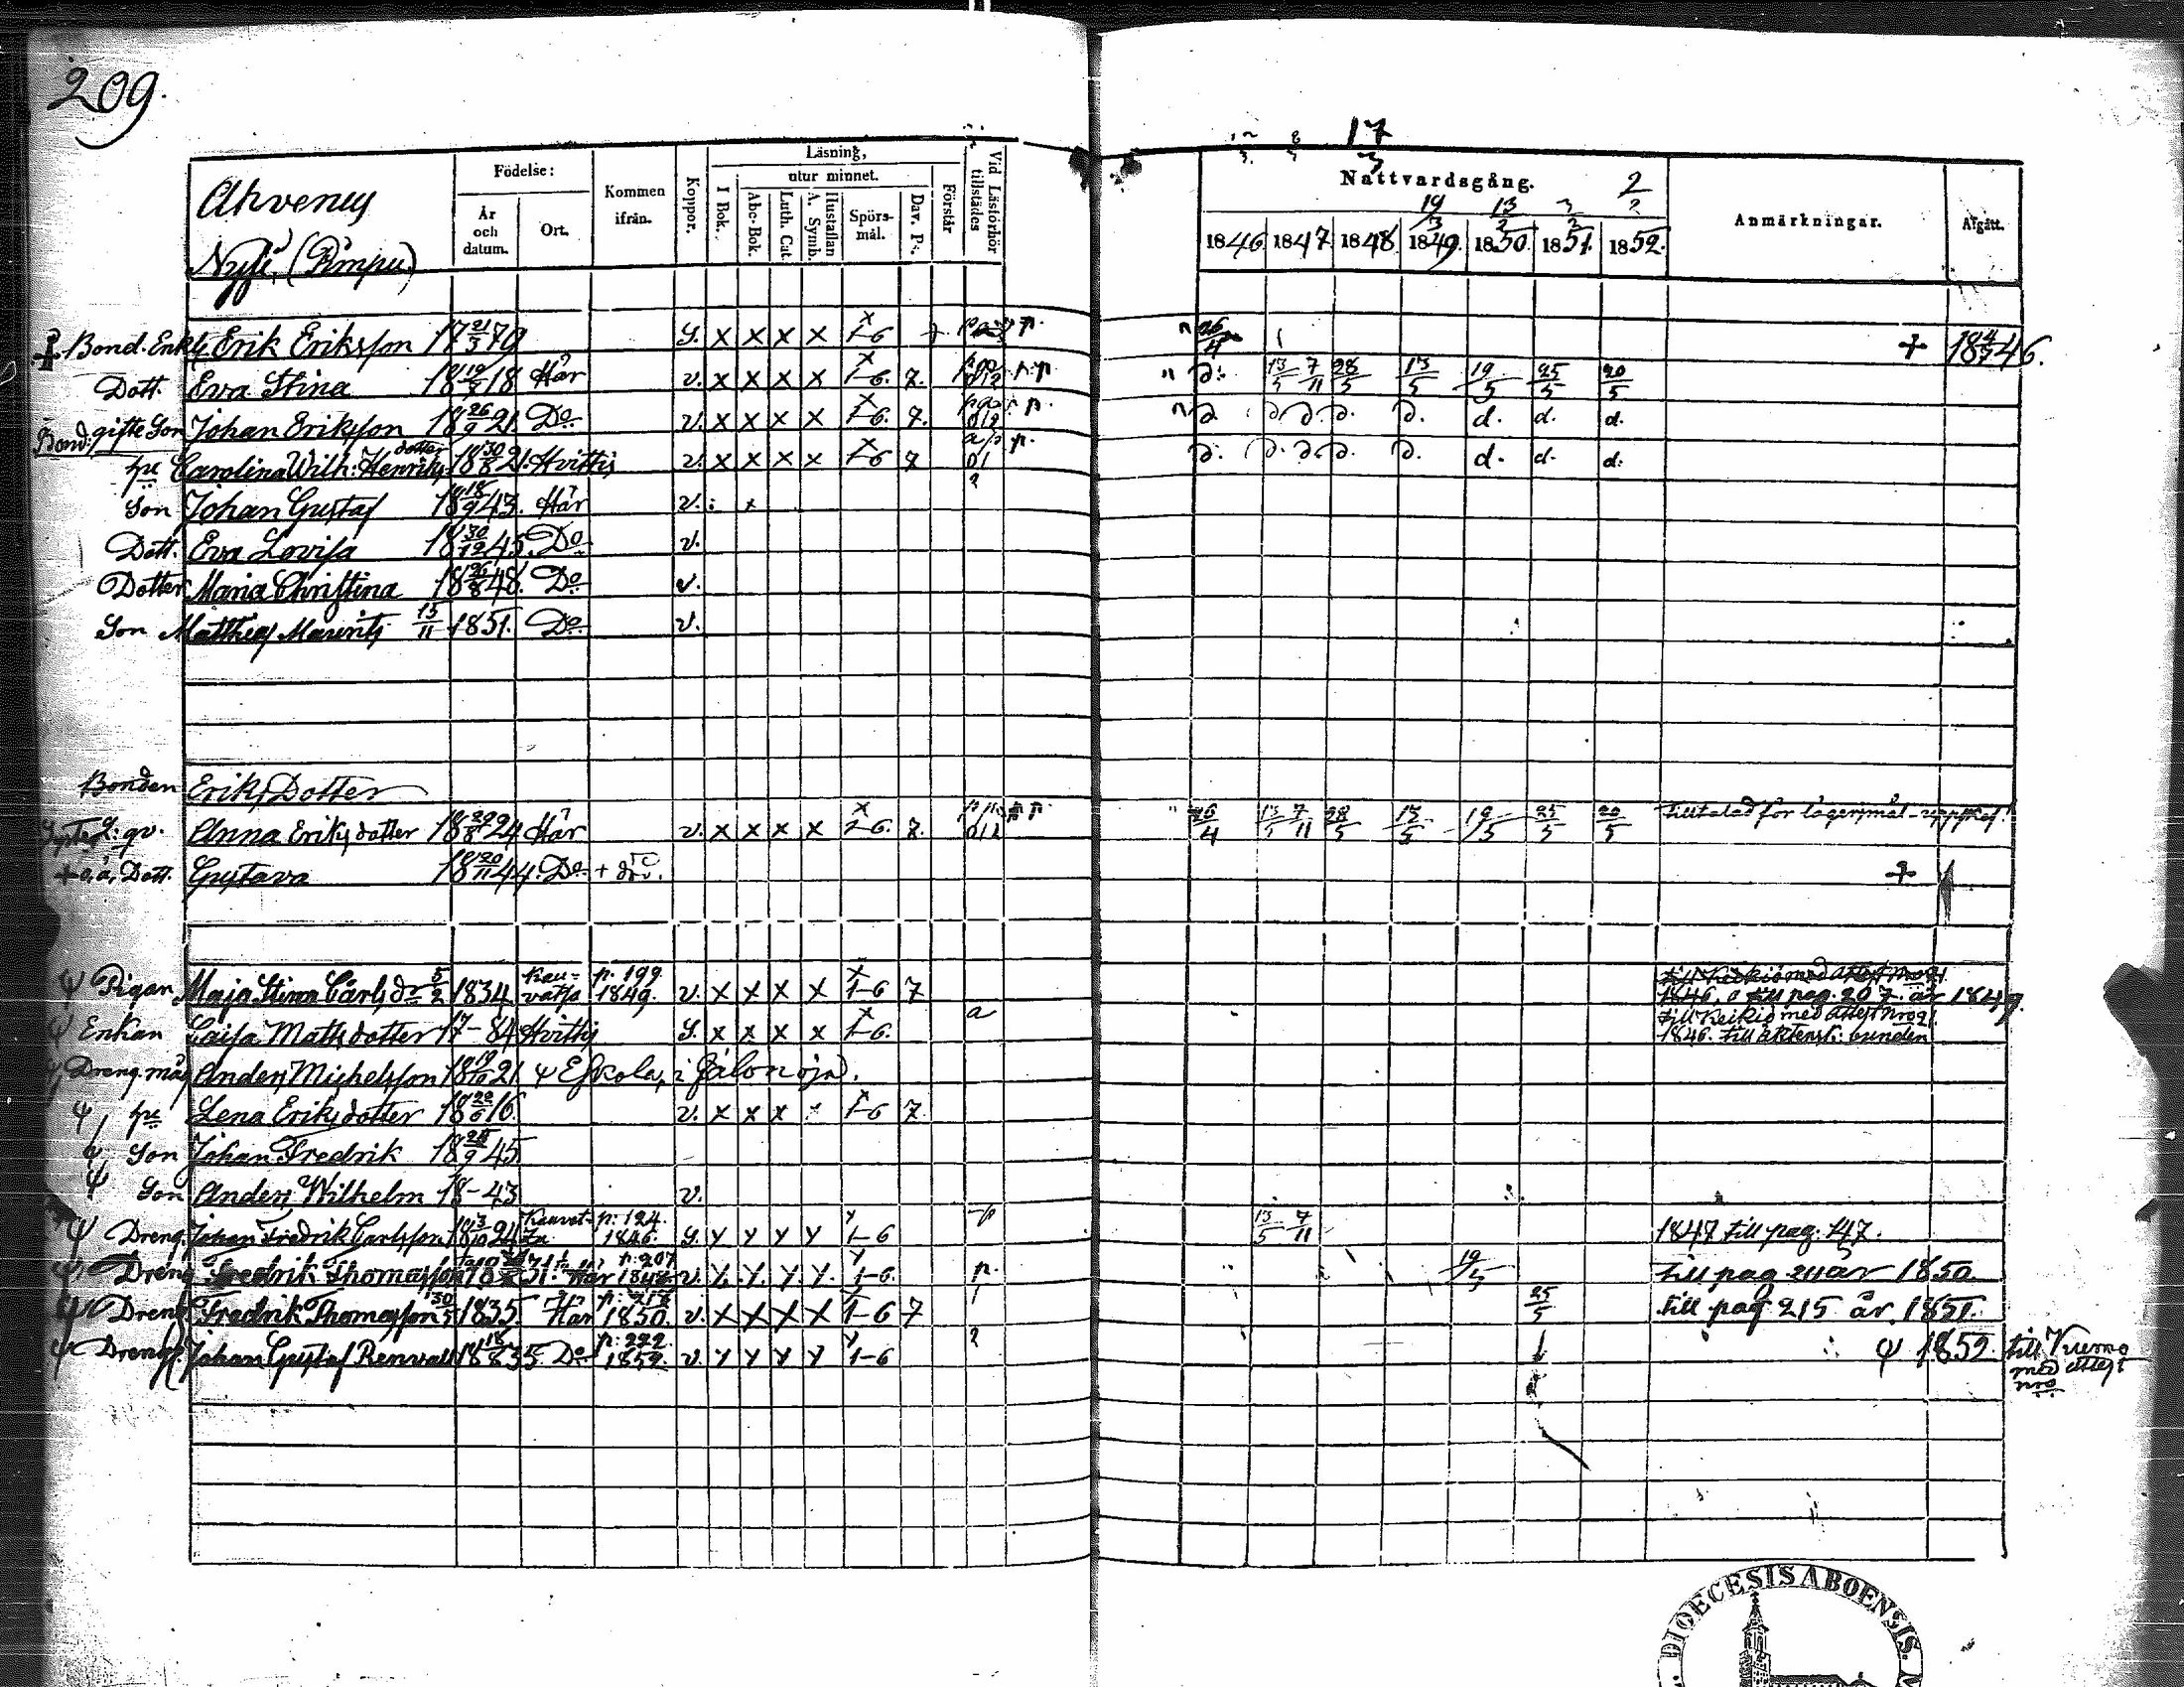 209.
Ahvenus
Nygå, (Pimpu)
Födelse:
År och datum.
Ort.
Kommen ifrån.
Koppor.
Läsning,
utur minnet.
I Bok.
Abc-Bok.
Luth. Cat.
Hustaflan A. Symb.
Spörs-mål.
Dav. Ps.
Förstår
Vid Läsförhör tillstädes
17
Nattvardsgång.
19/3 13/2 2/2
1846. 1847. 1848. 1849. 1850. 1851. 1852.
Anmärkningar.
Afgått.
Bond. Enkl. Erik Eriksson 17 21/3 79 S. x x x x 1-6 + 26/4 + 18 4/7 46.
Dott. Eva Stina 18 19/9 18 Här v. x x x x 1-6. 7. d: 13/5 7/11 28/5 13/5 19/5 25/5 20/5
Bond: gifte Son Johan Eriksson 18 26/9 21. Do v. x x x x 1-6. 7. d. d d. d. d. d. d. d.
hu Carolina Wilh: Henriks dotter 18 30/8 21. Hvittis v. x x x x 1-6 7 d. d. d. d. d. d. d. d.
Son Johan Gustaf 18 18/9 43. Här v. x
Dott. Eva Lovisa 18 30/12 45. Do v.
Dotter Maria Christina 18 26/8 48. Do v.
Son Matthias Maurits 15/11 1851. Do v.
Bonden Eriks Dotter
Anna Eriksdotter 18 29/8 24 Här v. x x x x 1-6. 7. 26/4 13/5 7/11 28/5 13/5 19/5 25/5 20/5 tilltalad för lägersmål
+ o.ä. Dott. Gustava 18 20/11 44. Do +
ψ Pigan Maja Stina Carlsdr 5/2 1834. Kau-vatsa p. 199 1849. v. x x x x 1-6 7 1846. till pag. 207. år 1849.
ψ Enkan Caisa Mattsdotter 17 - 84 Hvittis S. x x x x 1-6. a till Keikiö med attest nro 91. 1846. till äktensk: bunden
ψ Dreng. måg Anders Michelsson 18 19/10 21 ψ Eskola, i
ψ hu Lena Eriksdotter 18 20/6 16. v. x x x 1-6 7.
ψ Son Johan Fredrik 18 28/9 45
ψ Son Anders Wilhelm 18 - 43 v.
ψ Dreng. Johan Fredrik Carlsson 18 3/10 24 Kauvat-za p: 124. 1846. S. y y y y 1-6 13/5 7/11 1847 till pag. 147.
ψ Dreng Fredrik Thomasson 31. Här p: 207 1848 v. y. y. y. y. 1-6. p. 19/5 till pag 211 år 1850.
ψ Dreng. Fredrik Thomasson 30/5 1835. Här 1850. v. x x x x 1-6 7 25/5 till pag 215 år 1851.
ψ Dreng. Johan Gustaf Renvall 18 18/8 35. Do p: 222. 1852. v. y y y y 1-6 ψ 1852. till Kumo med attest nro
DIOECESIS ABOENSIS.